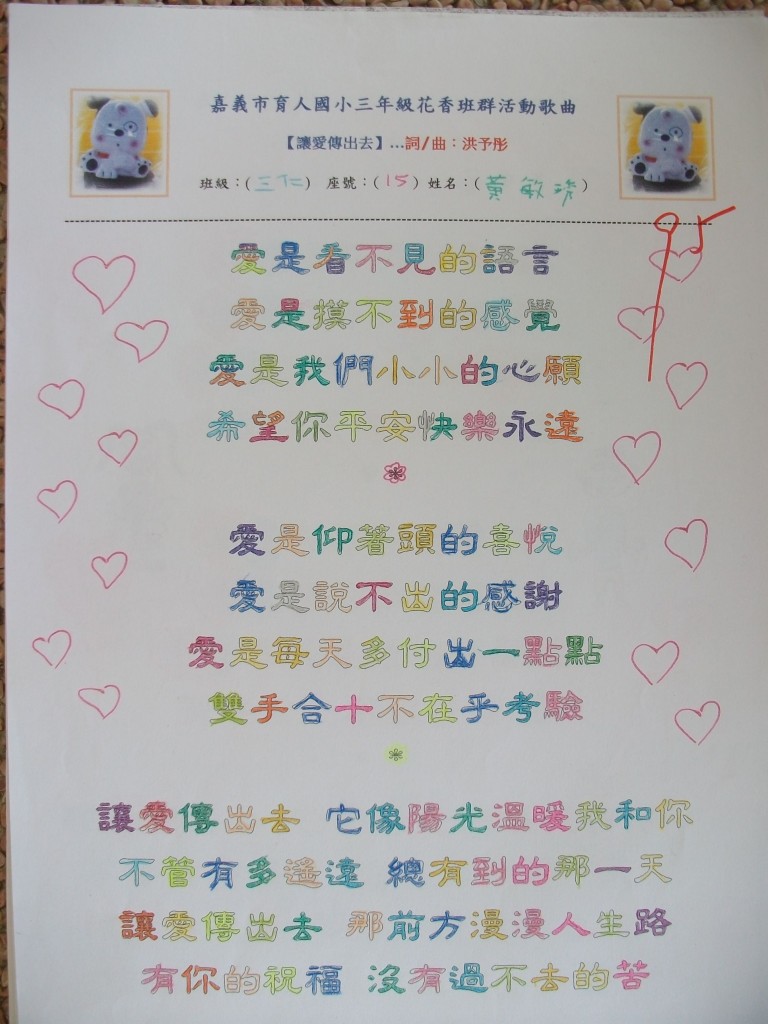 嘉義市育人國小三年級花香班群活動歌曲
【讓愛傳出去】…詞/曲：洪予彤
班級：(三仁) 座號：(15) 姓名：(黃敏)
愛是看不見的語言
愛是摸不到的感覺
愛是我們小小的心願
希望你平安快樂永遠
*
愛是仰著頭的喜悅
愛是說不出的感謝
愛是每天多付出一點點
雙手合十不在乎考驗
*
讓愛傳出去 它像陽光溫暖我和你
不管有多遙遠 總有到的那一天
讓愛傳出去 那前方漫漫人生路
有你的祝福 沒有過不去的苦